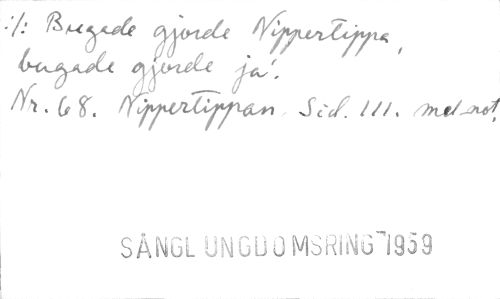 :/: Bugade gjorde Nippertippa,
bugade gjorde ja.
Nr. 68. Nippertippan. Sid. 111. mel-not.
SÅNGL UNGDOMSRING 1959